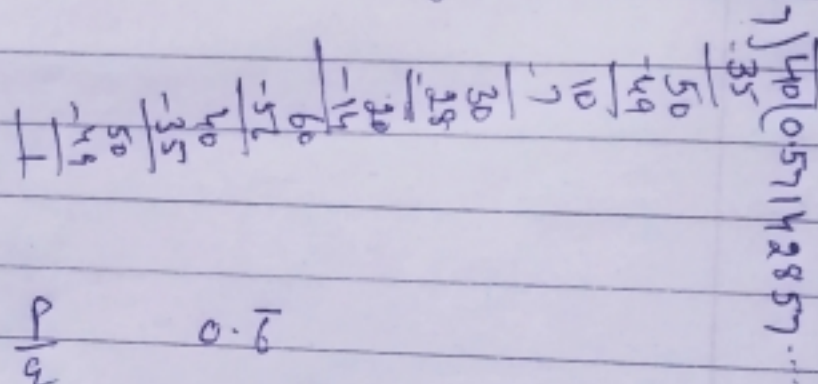 7)40(0.57142857...
-35
50
-49
10
-7
30
-28
20
-14
60
-56
40
-35
50
-49
1